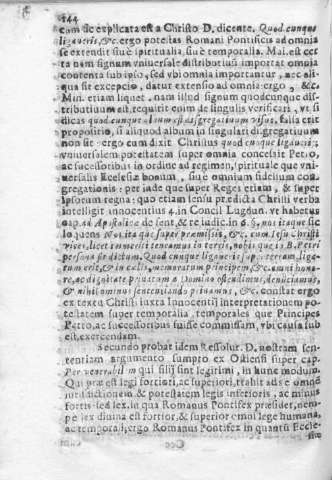 244
cam sic explicata est a Christo D. dicente. Quod cunque
ligaueris, &c. ergo potestas Romani Pontificis ad omnia
se extendit siuè spiritualia, siuè temporalia. Mai. est cer
ta nam signum vniuersale distributiuũ importat omnia
contenta sub ipso, sed vbi omnia importantur, nec ali-
qua fit excepcio, datur extensio ad omnia: ergo, &c.
Min. etiam liquet, nam illud signum quodcunque dis-
tributiuum est, requirit enim de singulis verificari, vt si
dicas quod cunque album est disgregatiuum visus, falsa erit
propositio, si aliquod album in singulari disgregatiuum
non sit: ergo cum dixit Christus quod cunque ligaueris;
vniuersalem potestatem super omnia concessit Petro,
ac successoribus in ordine ad regimen, spirituale que vni-
uersalis Ecclesiæ bonum, siuè omnium fidelium con-
gregationis: per inde que super Reges etiam, & super
ipsorum regna: quo etiam sensu prædicta Christi verba
intelligit innocentius 4. in Concil Lugdun. vt habetur
cap. ad Apostolicæ de sent. & re iudic. in 6. §. nos itaque sic
loquens Nos itaque super præmissis, &c. cum Iesu Christi
vices, licet immeriti teneamus in terris, nobis que in B. Petri
persona sit dictum. Quod cunque ligaueris super terram, liga-
tum erit, & in cælis, memoratum principem, & omni hono-
re, ac dignitate priuatum a Domino ostendimus, denuciamus,
& nihilominus sentenciando priuamus, &c. constat ergo
ex textu Christi iuxta Innocentij interpretationem po-
testatem super temporalia, temporales que Principes
Petro, ac successoribus fuisse commissam, vbi causa sub
est, exercendam.
Secundo probat idem Ressolut. D. nostram sen-
tentiam argumento sumpto ex Ostiensi super cap.
Per venerabilem qui filij sint legitimi, in hunc modum.
Qui præest legi fortiori, ac superiori, trahit ad se omnẽ
iurisdictionem & potestatem legis inferioris, ac minus
fortis: sed lex, in qua Romanus Pontifex præsidet, nem-
pe lex diuina est fortior, & superior omni lege humana,
ac temporali, ergo Romanus Pontifex in quantũ Eccle-